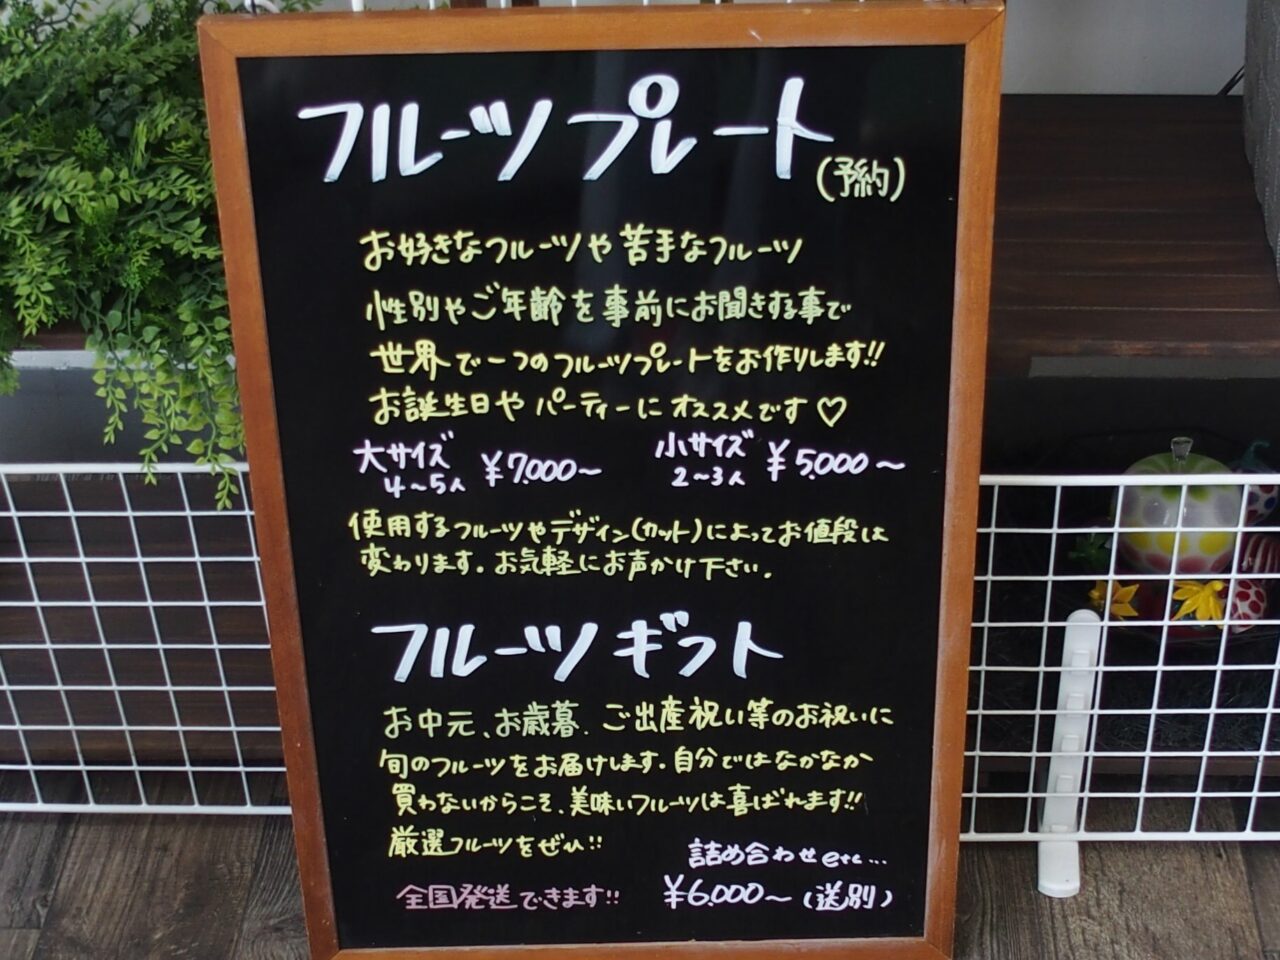 フルーツプレート
(予約)
お好きなフルーツや苦手なフルーツ
性別やご年齢を事前にお聞きする事で
世界で一つのフルーツプレートをお作りします!!
お誕生日やパーティーにオススメです♡
大サイズ 4～5人 ¥7,000～ 小サイズ 2～3人 ¥5,000～
使用するフルーツやデザイン(カット)によってお値段は
変わります。お気軽にお声かけ下さい。
フルーツギフト
お中元、お歳暮、ご出産祝い等のお祝いに
旬のフルーツをお届けします。自分ではなかなか
買わないからこそ、美味いフルーツは喜ばれます!!
厳選フルーツをぜひ!!
詰め合わせetc...
全国発送できます!! ¥6,000～(送別)